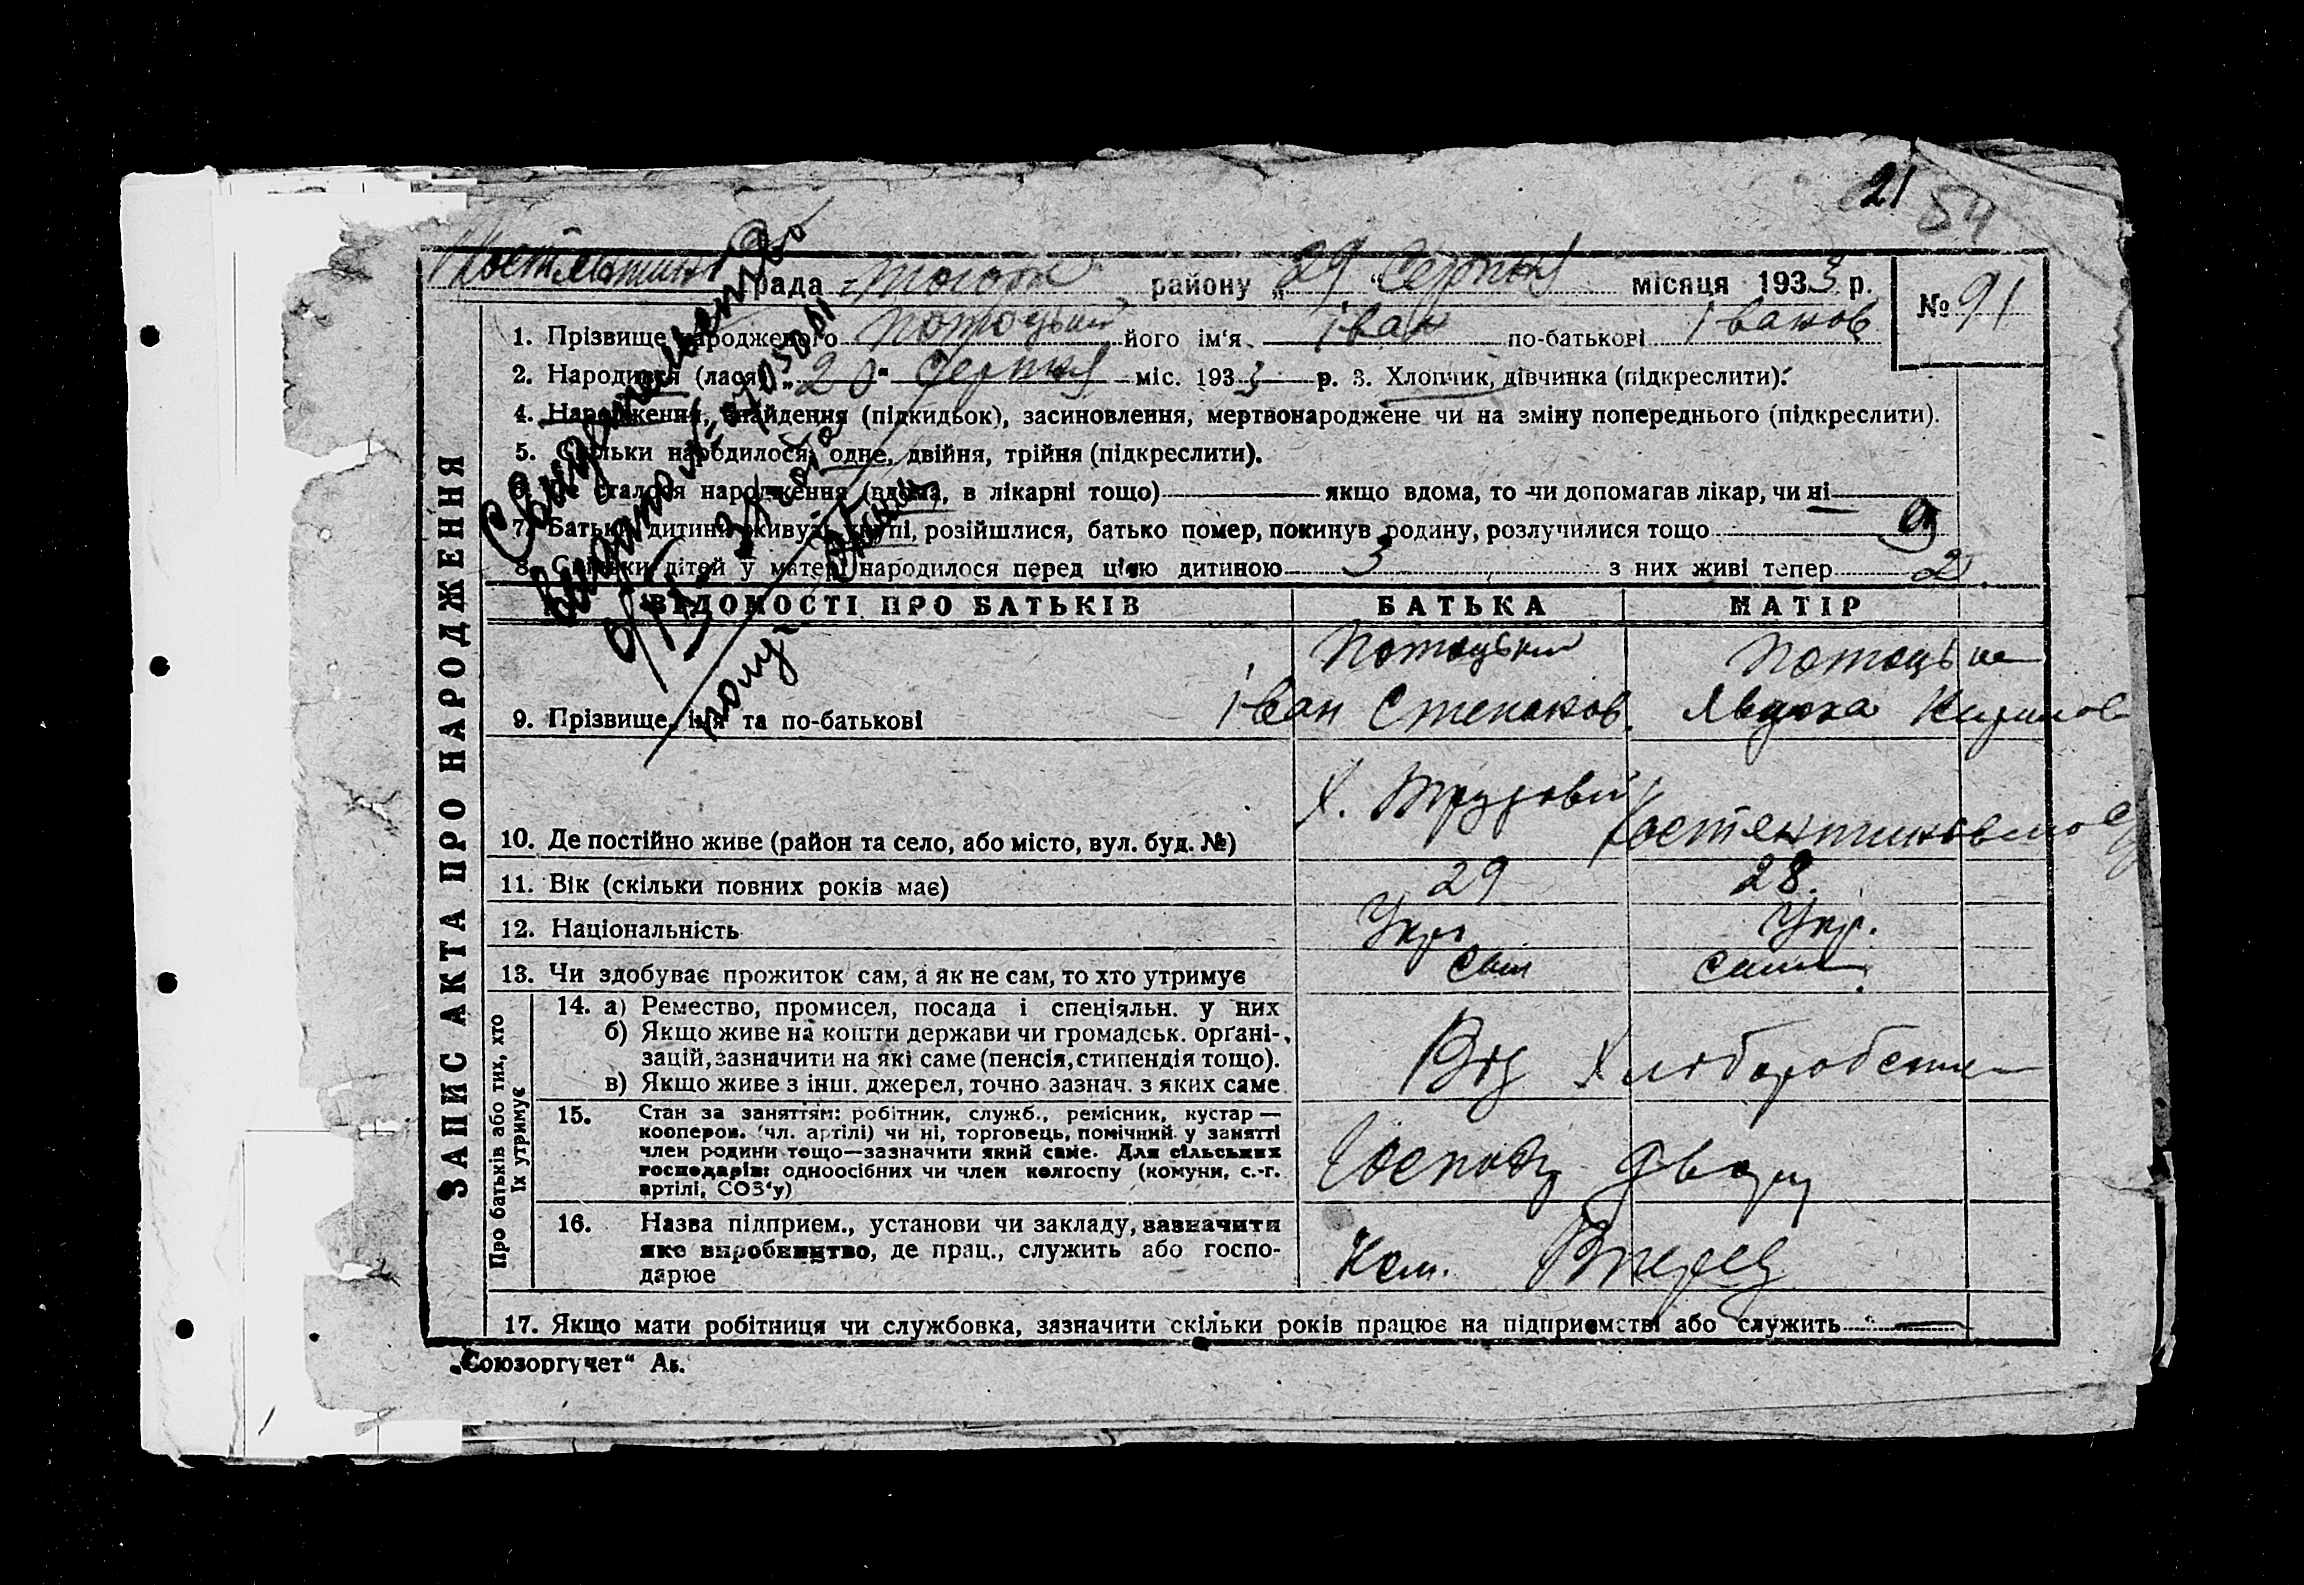 21 54
рада району „29 Серпня місяця 1933 р.
№ 91
1. Прізвище народженого Потоцький його ім'я Іван по-батькові Іванов
2. Народився (лася) „20" Серпня міс. 1933 р. 3. Хлопчик, дівчинка (підкреслити).
4. Народження, знайдення (підкидьок), засиновлення, мертвонароджене чи на зміну попереднього (підкреслити).
5. Скільки народилося, одне, двійня, трійня (підкреслити).
сталося народження (вдома, в лікарні тощо) якщо вдома, то чи допомагав лікар, чи ні
7. Батьки дитини живуть вкупі, розійшлися, батько помер, покинув родину, розлучилися тощо
8. Скільки дітей у матері народилося перед цією дитиною 3 з них живі тепер 2
Свидетельство
ВІДОМОСТІ ПРО БАТЬКІВ БАТЬКА МАТІР
ЗАПИС АКТА ПРО НАРОДЖЕННЯ
Потоцький Потоцька
9. Прізвище, ім'я та по-батькові Іван Степанов. Явдоха Кирилов
Х. Трудовий
10. Де постійно живе (район та село, або місто, вул. буд. №)
11. Вік (скільки повних років має) 29 28.
12. Національність Укр. Укр.
13. Чи здобуває прожиток сам, а як не сам, то хто утримує сам сама
Про батьків або тих, хто
їх утримує
14. а) Ремество, промисел, посада і спеціяльн. у них
б) Якщо живе на кошти держави чи громадськ. орґані-
зацій, зазначити на які саме (пенсія, стипендія тощо).
в) Якщо живе з інш. джерел, точно зазнач. з яких саме
Від Хліборобства
15. Стан за заняттям: робітник, служб., ремісник, кустар —
кооперов. (чл. артілі) чи ні, торговець, помічний у занятті
член родини тощо—зазначити який саме. Для сільських
господарів: одноосібних чи член колгоспу (комуни, с.-г.
артілі, СОЗ'у)
Господ двору
16. Назва підприєм., установи чи закладу, зазначити
яке виробництво, де прац., служить або госпо-
дарює
Вперед
17. Якщо мати робітниця чи службовка, зазначити скільки років працює на підприємстві або служить
„Союзоргучет“